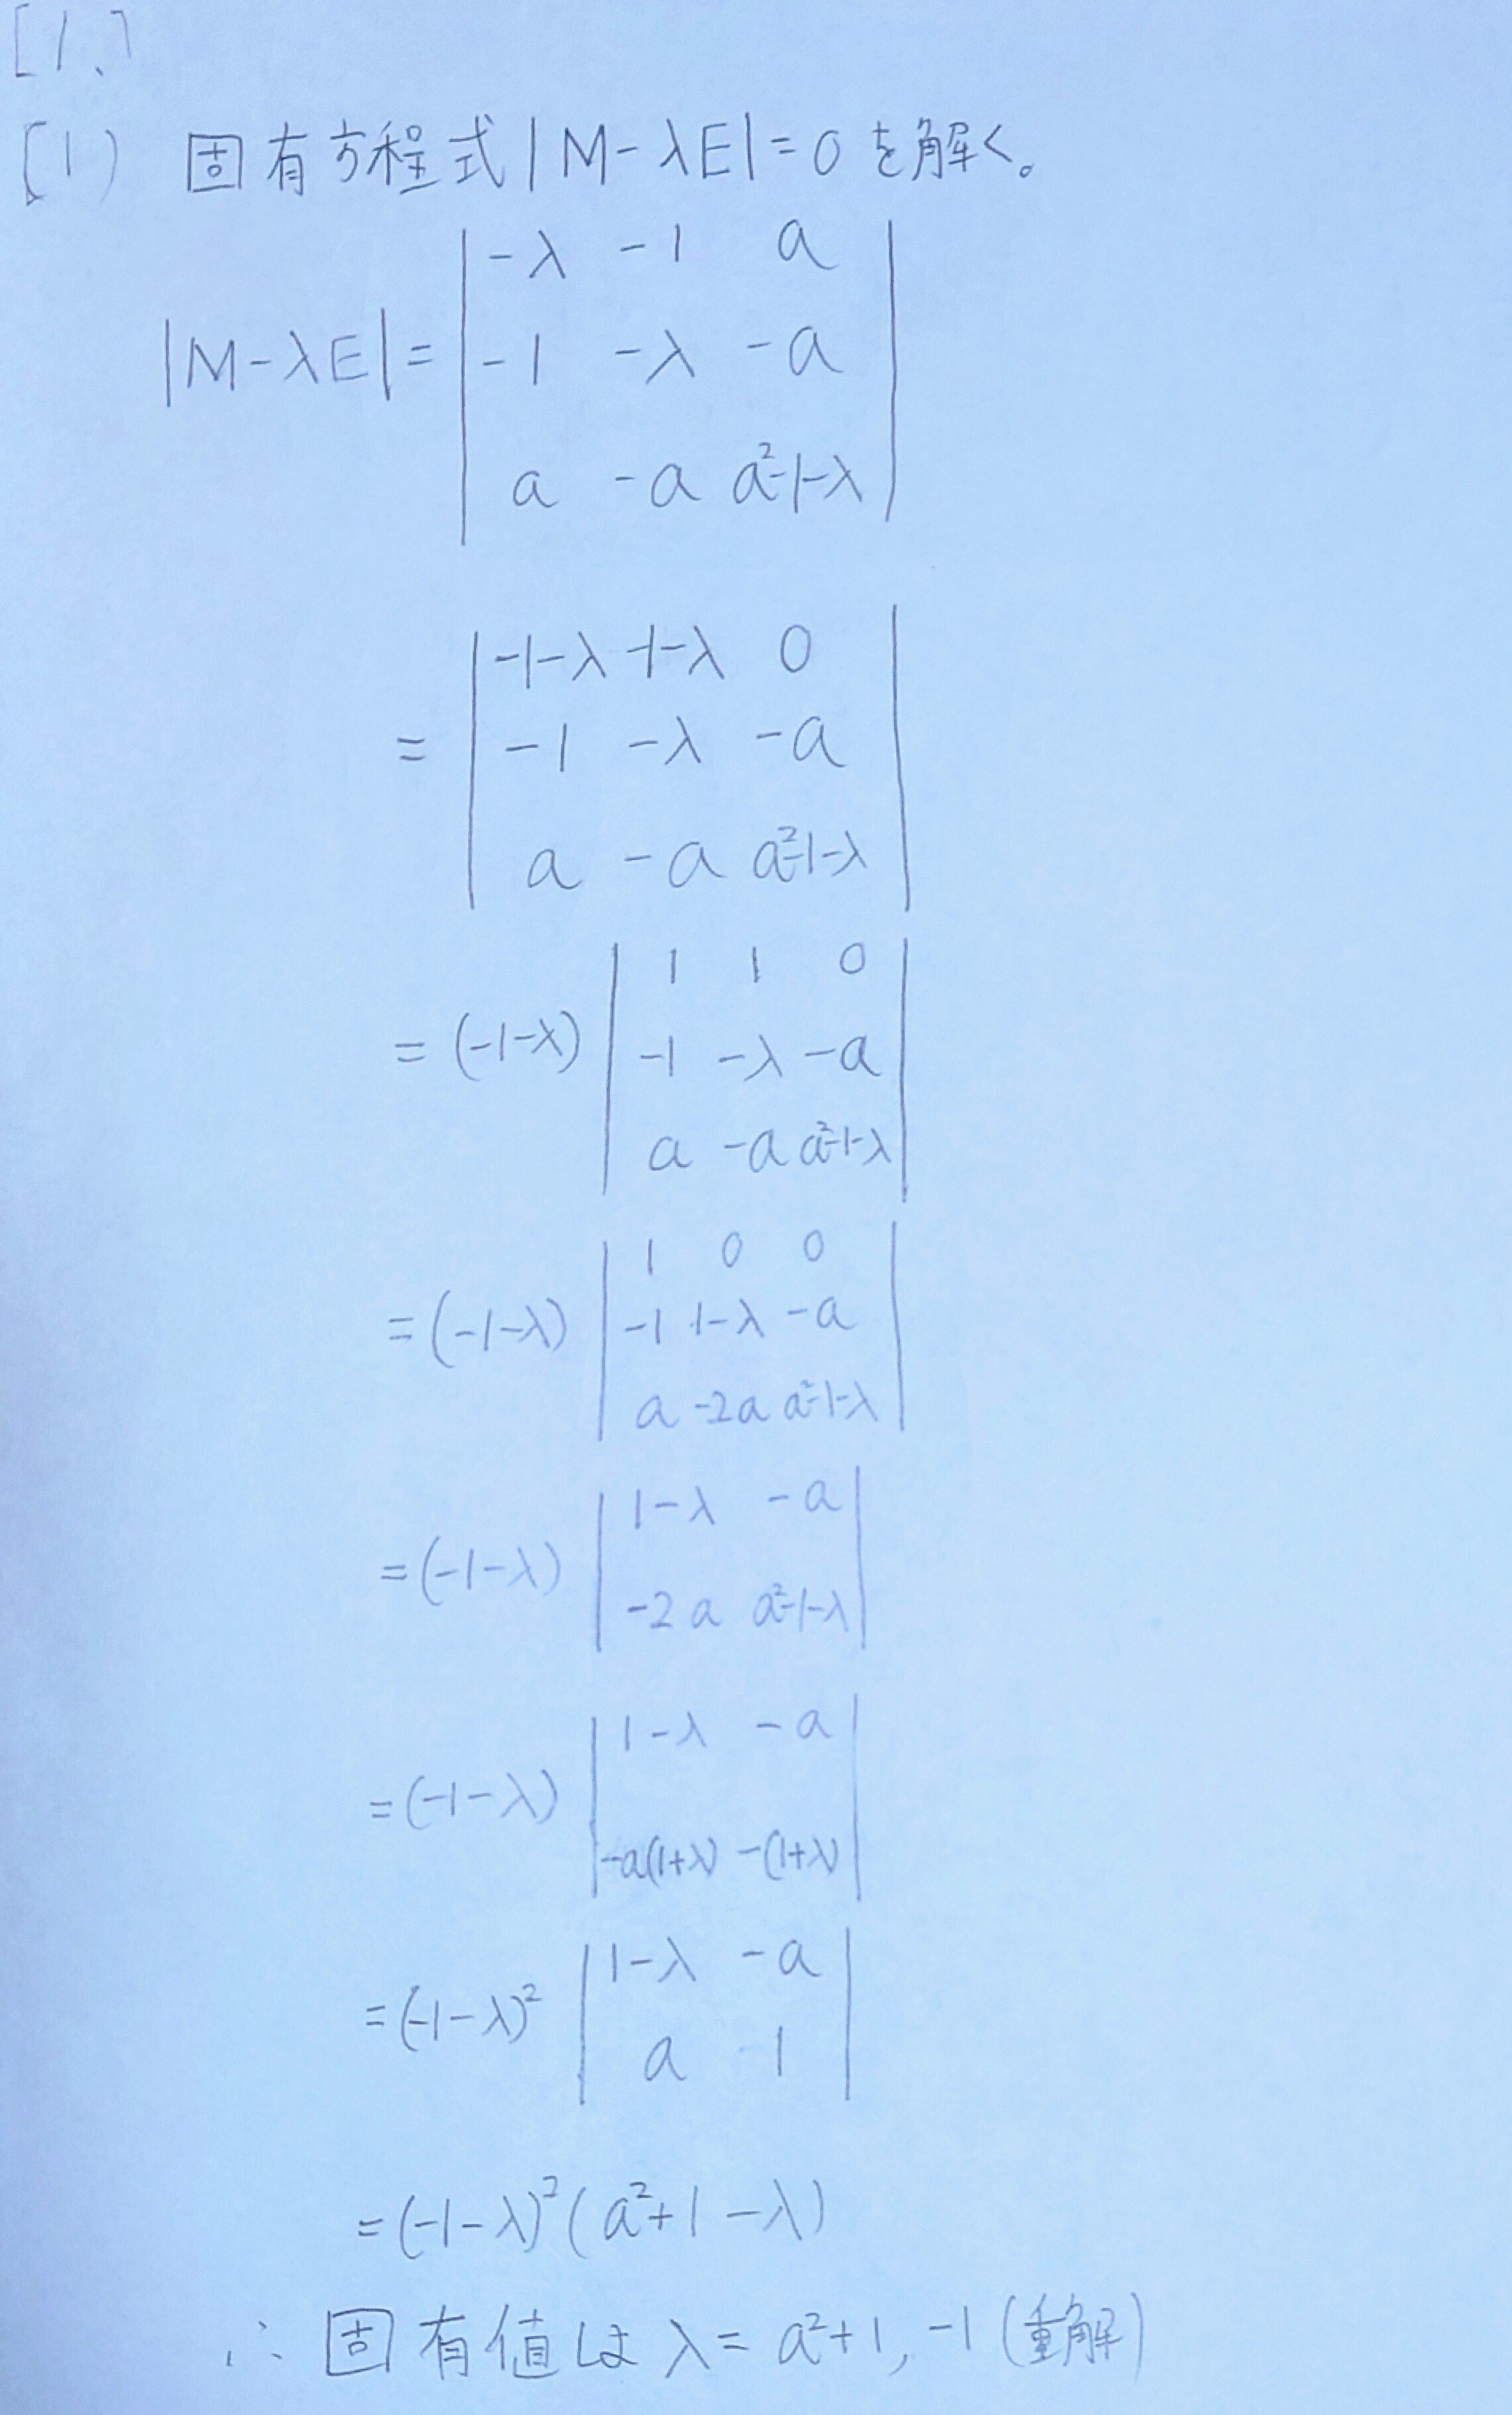 [1.]
(1) 固有方程式|M-λE|=0を解く。
-λ -1 a
|M-λE|= -1 -λ -a
a -a a²-1-λ
-1-λ -1-λ 0
= -1 -λ -a
a -a a²-1-λ
1 1 0
=(-1-λ) -1 -λ -a
a -a a²-1-λ
1 0 0
=(-1-λ) -1 1-λ -a
a -2a a²-1-λ
1-λ -a
=(-1-λ)
-2a a²-1-λ
1-λ -a
=(-1-λ)
-a(1+λ) -(1+λ)
1-λ -a
=(-1-λ)²
a 1
=(-1-λ)²(a²+1-λ)
∴固有値はλ=a²+1, -1(重解)